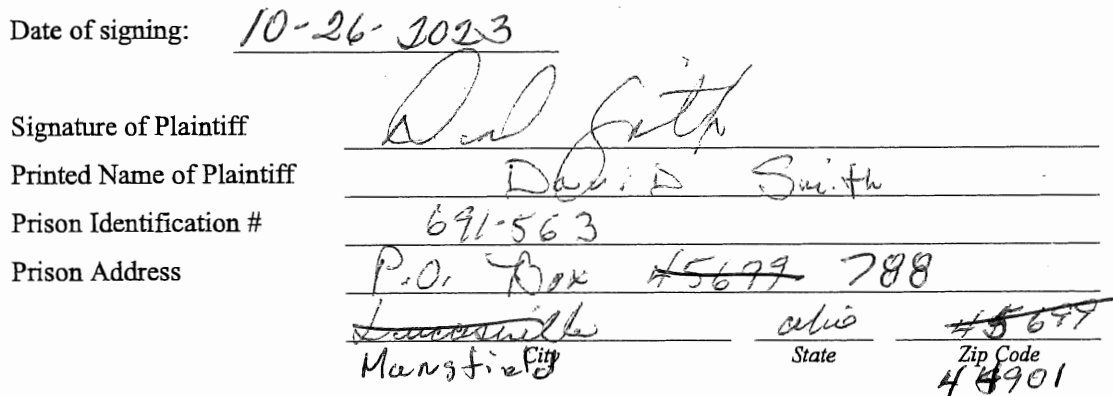 Date of signing: 10-26-2023
Signature of Plaintiff David Smith
Printed Name of Plaintiff DaviD Smith
Prison Identification # 691-563
Prison Address P.O. Box 45699 788
Lucasville ohio 45699
City State Zip Code
Mansfield 44901